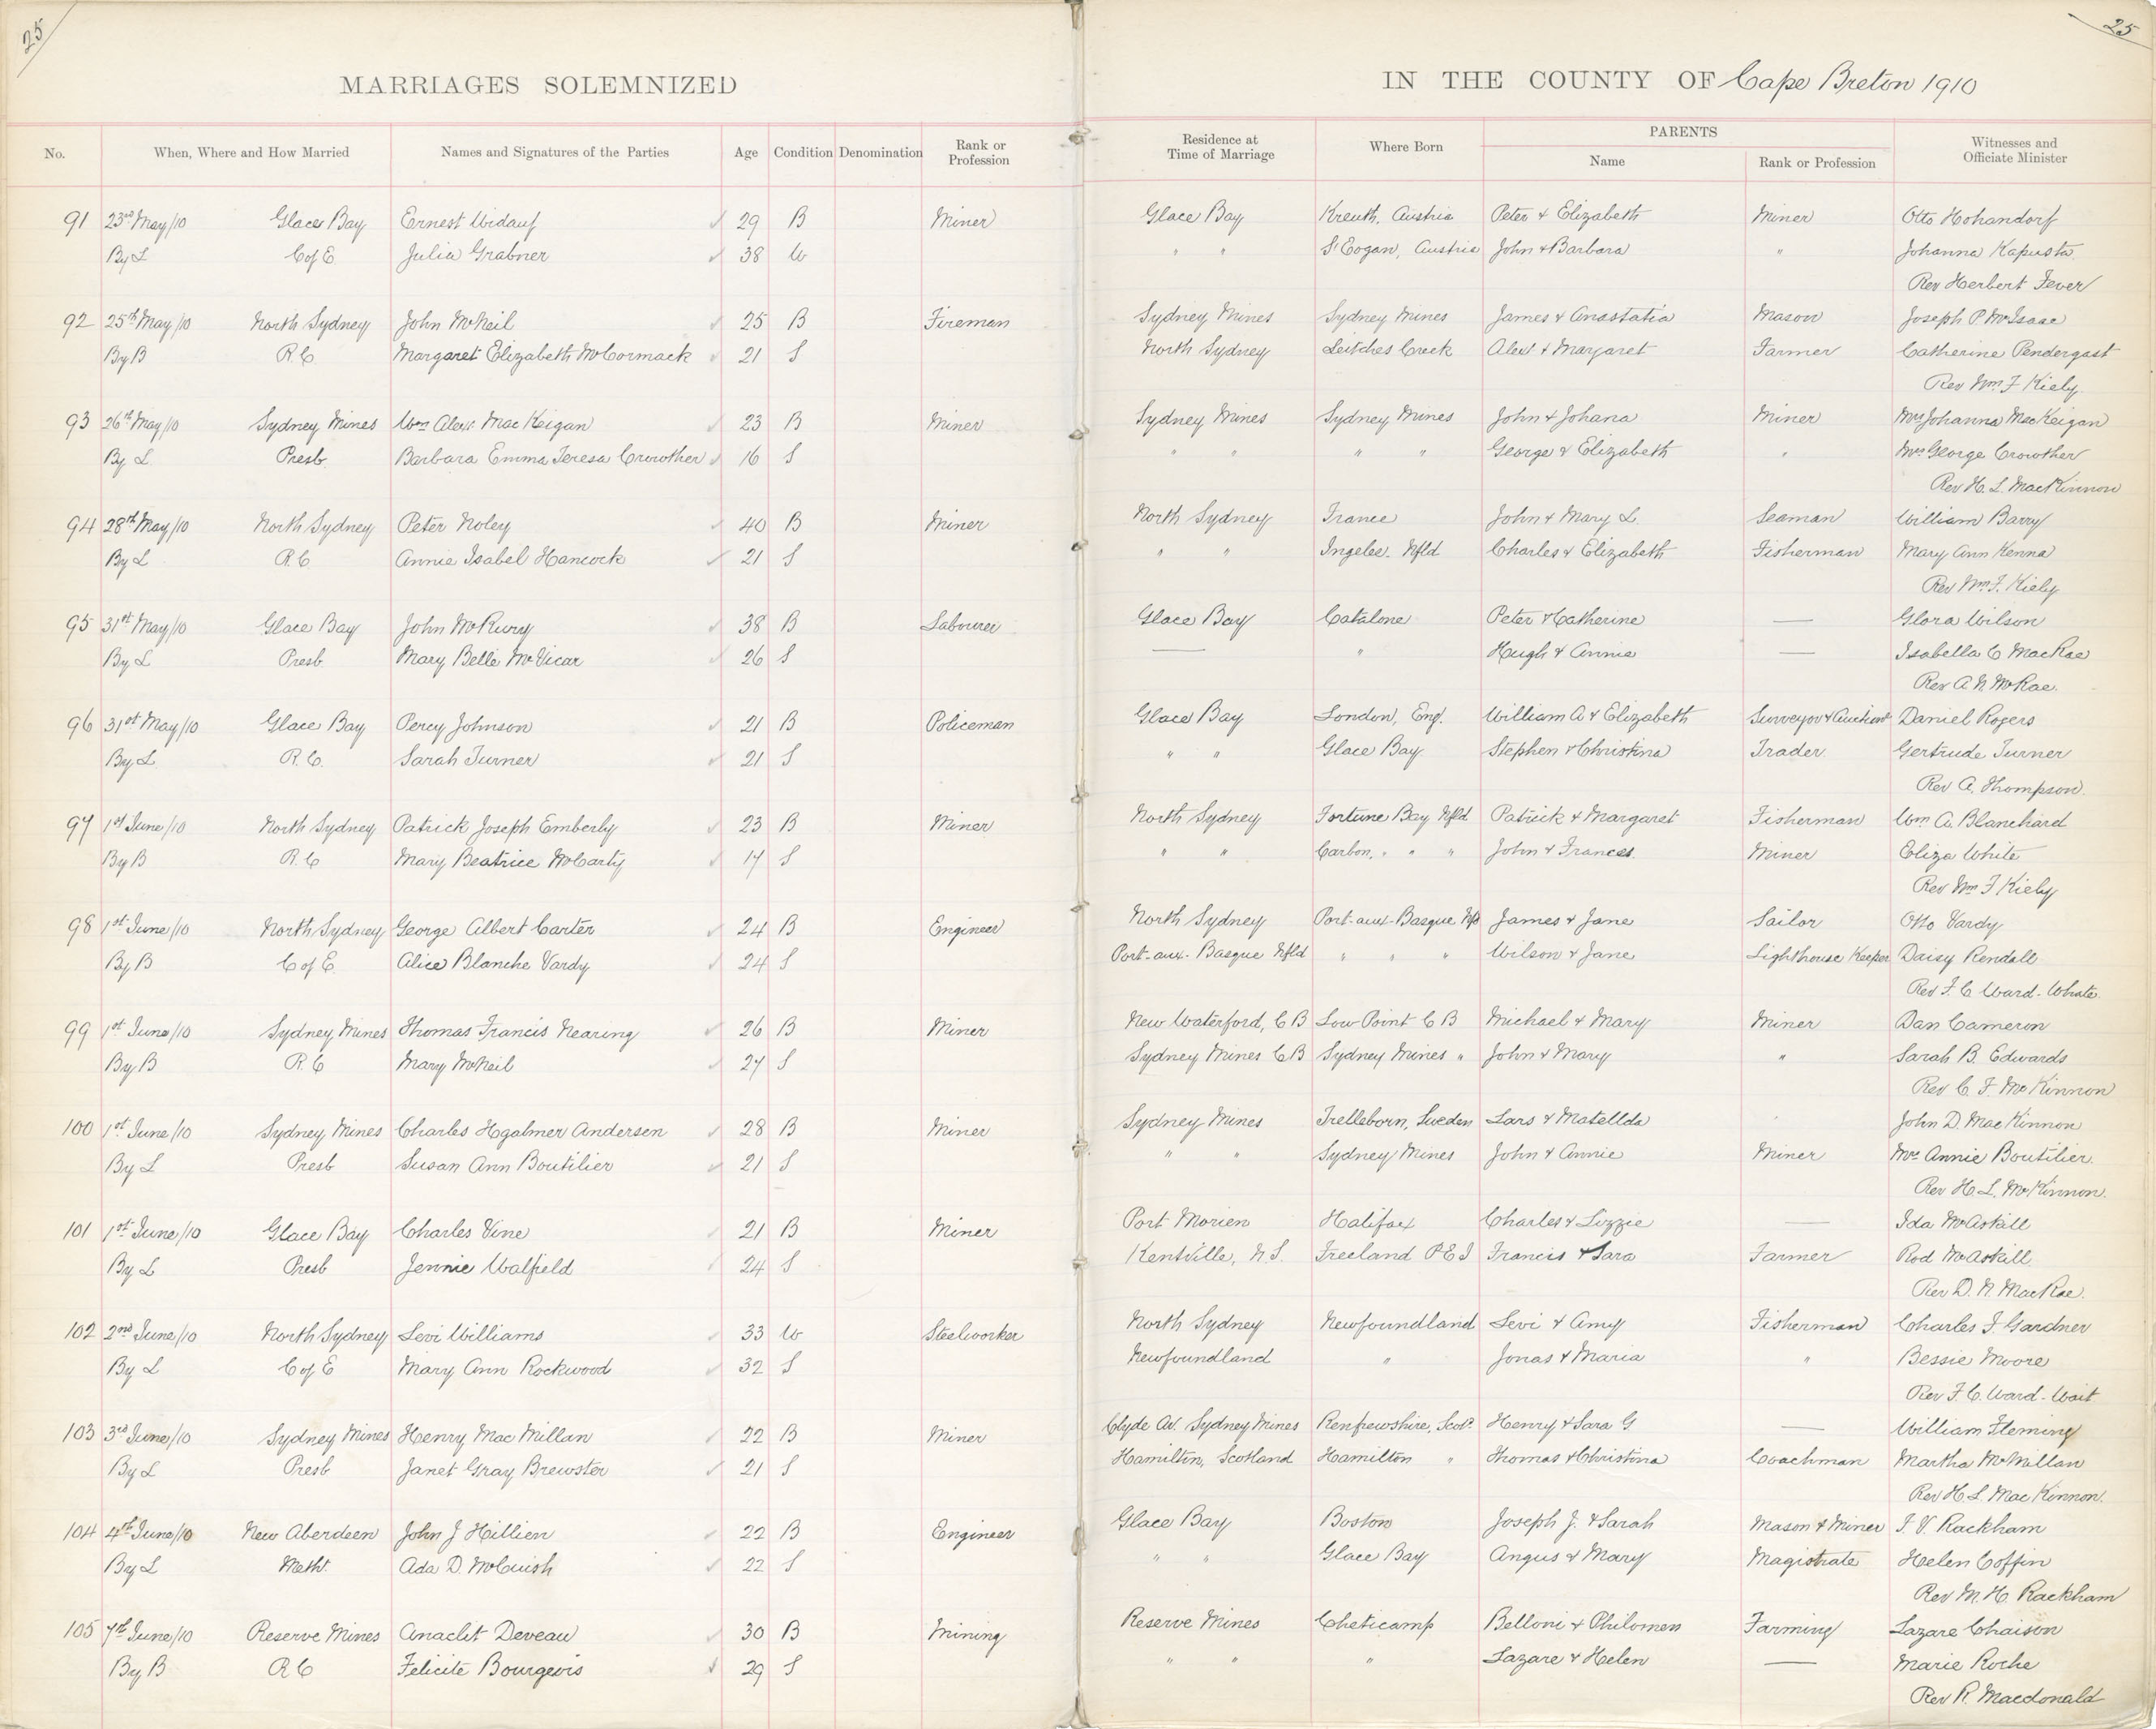 25
25
MARRIAGES SOLEMNIZED
IN THE COUNTY OF Cape Breton 1910
No. When, Where and How Married Names and Signatures of the Parties Age Condition Denomination Rank or Profession Residence at Time of Marriage Where Born PARENTS Name Rank or Profession Witnesses and Officiate Minister
91 23rd May/10 Glace Bay Ernest 29 B Miner Glace Bay Kreuth, Austria Peter & Elizabeth Miner Otto Hohandorf
By L C of E Julia Grabner 38 W " " St Eogan, Austria John & Barbara " Johanna Kapusta
Rev Herbert Fever
92 25th May/10 North Sydney John McNeil 25 B Fireman Sydney Mines Sydney Mines James & Anastatia Mason Joseph P McIsaac
By B R.C. Margaret Elizabeth McCormack 21 S North Sydney Leitches Creek Alex & Margaret Farmer Catherine Pendergast
Rev Wm F Kiely
93 26th May/10 Sydney Mines Wm Alex MacKeigan 23 B Miner Sydney Mines Sydney Mines John & Johana Miner Mrs Johanna MacKeigan
By L Presb Barbara Emma Teresa Crowther 16 S " " " " George & Elizabeth " Mrs George Crowther
Rev H. L. MacKinnon
94 28th May/10 North Sydney Peter Noley 40 B Miner North Sydney France John & Mary L. Seaman William Barry
By L R.C. Annie Isabel Hancock 21 S " " Ingelee. Nfld Charles & Elizabeth Fisherman Mary Ann Kenna
Rev Wm F. Kiely
95 31st May/10 Glace Bay John McRury 38 B Labourer Glace Bay Catalone Peter & Catherine — Glora Wilson
By L Presb Mary Belle McVicar 26 S — " Hugh & Annie — Isabella C MacRae
Rev A N McRae.
96 31st May/10 Glace Bay Percy Johnson 21 B Policeman Glace Bay London, Eng. William A & Elizabeth Surveyor & Daniel Rogers
By L R.C. Sarah Turner 21 S " " Glace Bay Stephen & Christina Trader Gertrude Turner
Rev A. Thompson.
97 1st June/10 North Sydney Patrick Joseph Emberly 23 B Miner North Sydney Fortune Bay Nfld Patrick & Margaret Fisherman Wm A. Blanchard
By B R.C Mary Beatrice McCarty 17 S " " Carbon, " " " John & Frances Miner Eliza White
Rev Wm F Kiely
98 1st June/10 North Sydney George Albert Carter 24 B Engineer North Sydney Port-aux-Basque Nfld James & Jane Sailor Otto Vardy
By B C of E Alice Blanche Vardy 24 S Port-aux-Basque Nfld " " " Wilson & Jane Lighthouse Keeper Daisy Rendell
Rev F. C Ward-Whate.
99 1st June/10 Sydney Mines Thomas Francis Nearing 26 B Miner New Waterford, CB Low Point C B Michael & Mary Miner Dan Cameron
By B R.C Mary McNeil 27 S Sydney Mines CB Sydney Mines " John & Mary " Sarah B. Edwards
Rev C. F. McKinnon
100 1st June/10 Sydney Mines Charles Hgalmer Andersen 28 B Miner Sydney Mines Trelleborn, Sweden Lars & Matellda John D. MacKinnon
By L Presb Susan Ann Boutilier 21 S " " Sydney Mines John & Annie Miner Mrs Annie Boutilier.
Rev H. L. McKinnon.
101 1st June/10 Glace Bay Charles Vine 21 B Miner Port Morien Halifax Charles & Lizzie — Ida McAskill
By L Presb Jennie Walfield 24 S Kentville, N.S. Freeland P E I Francis & Sara Farmer Rod McAskill
Rev D. N. MacRae.
102 2nd June/10 North Sydney Levi Williams 33 W Steelworker North Sydney Newfoundland Levi & Amy Fisherman Charles F Gardner
By L C of E Mary Ann Rockwood 32 S Newfoundland " Jonas & Maria " Bessie Moore
Rev F. C. Ward-Wait
103 3rd June/10 Sydney Mines Henry MacMillan 22 B Miner Clyde Av. Sydney Mines Renfrewshire, Scot. Henry & Sara G — William Fleming
By L Presb Janet Gray Brewster 21 S Hamilton, Scotland Hamilton " Thomas & Christina Coachman Martha McMillan
Rev H L MacKinnon.
104 4th June/10 New Aberdeen John J Hillier 22 B Engineer Glace Bay Boston Joseph J. & Sarah Mason & Miner J. V. Rackham
By L Meth. Ada D. McCuish 22 S " " Glace Bay Angus & Mary Magistrate Helen Coffin
Rev M. H. Rackham
105 7th June/10 Reserve Mines Anaclit Deveau 30 B Mining Reserve Mines Cheticamp Belloni & Philomen Farming Lazare Chaison
By B R C Felicite Bourgeois 29 S " " " Lazare & Helen — Marie Roche
Rev R. Macdonald